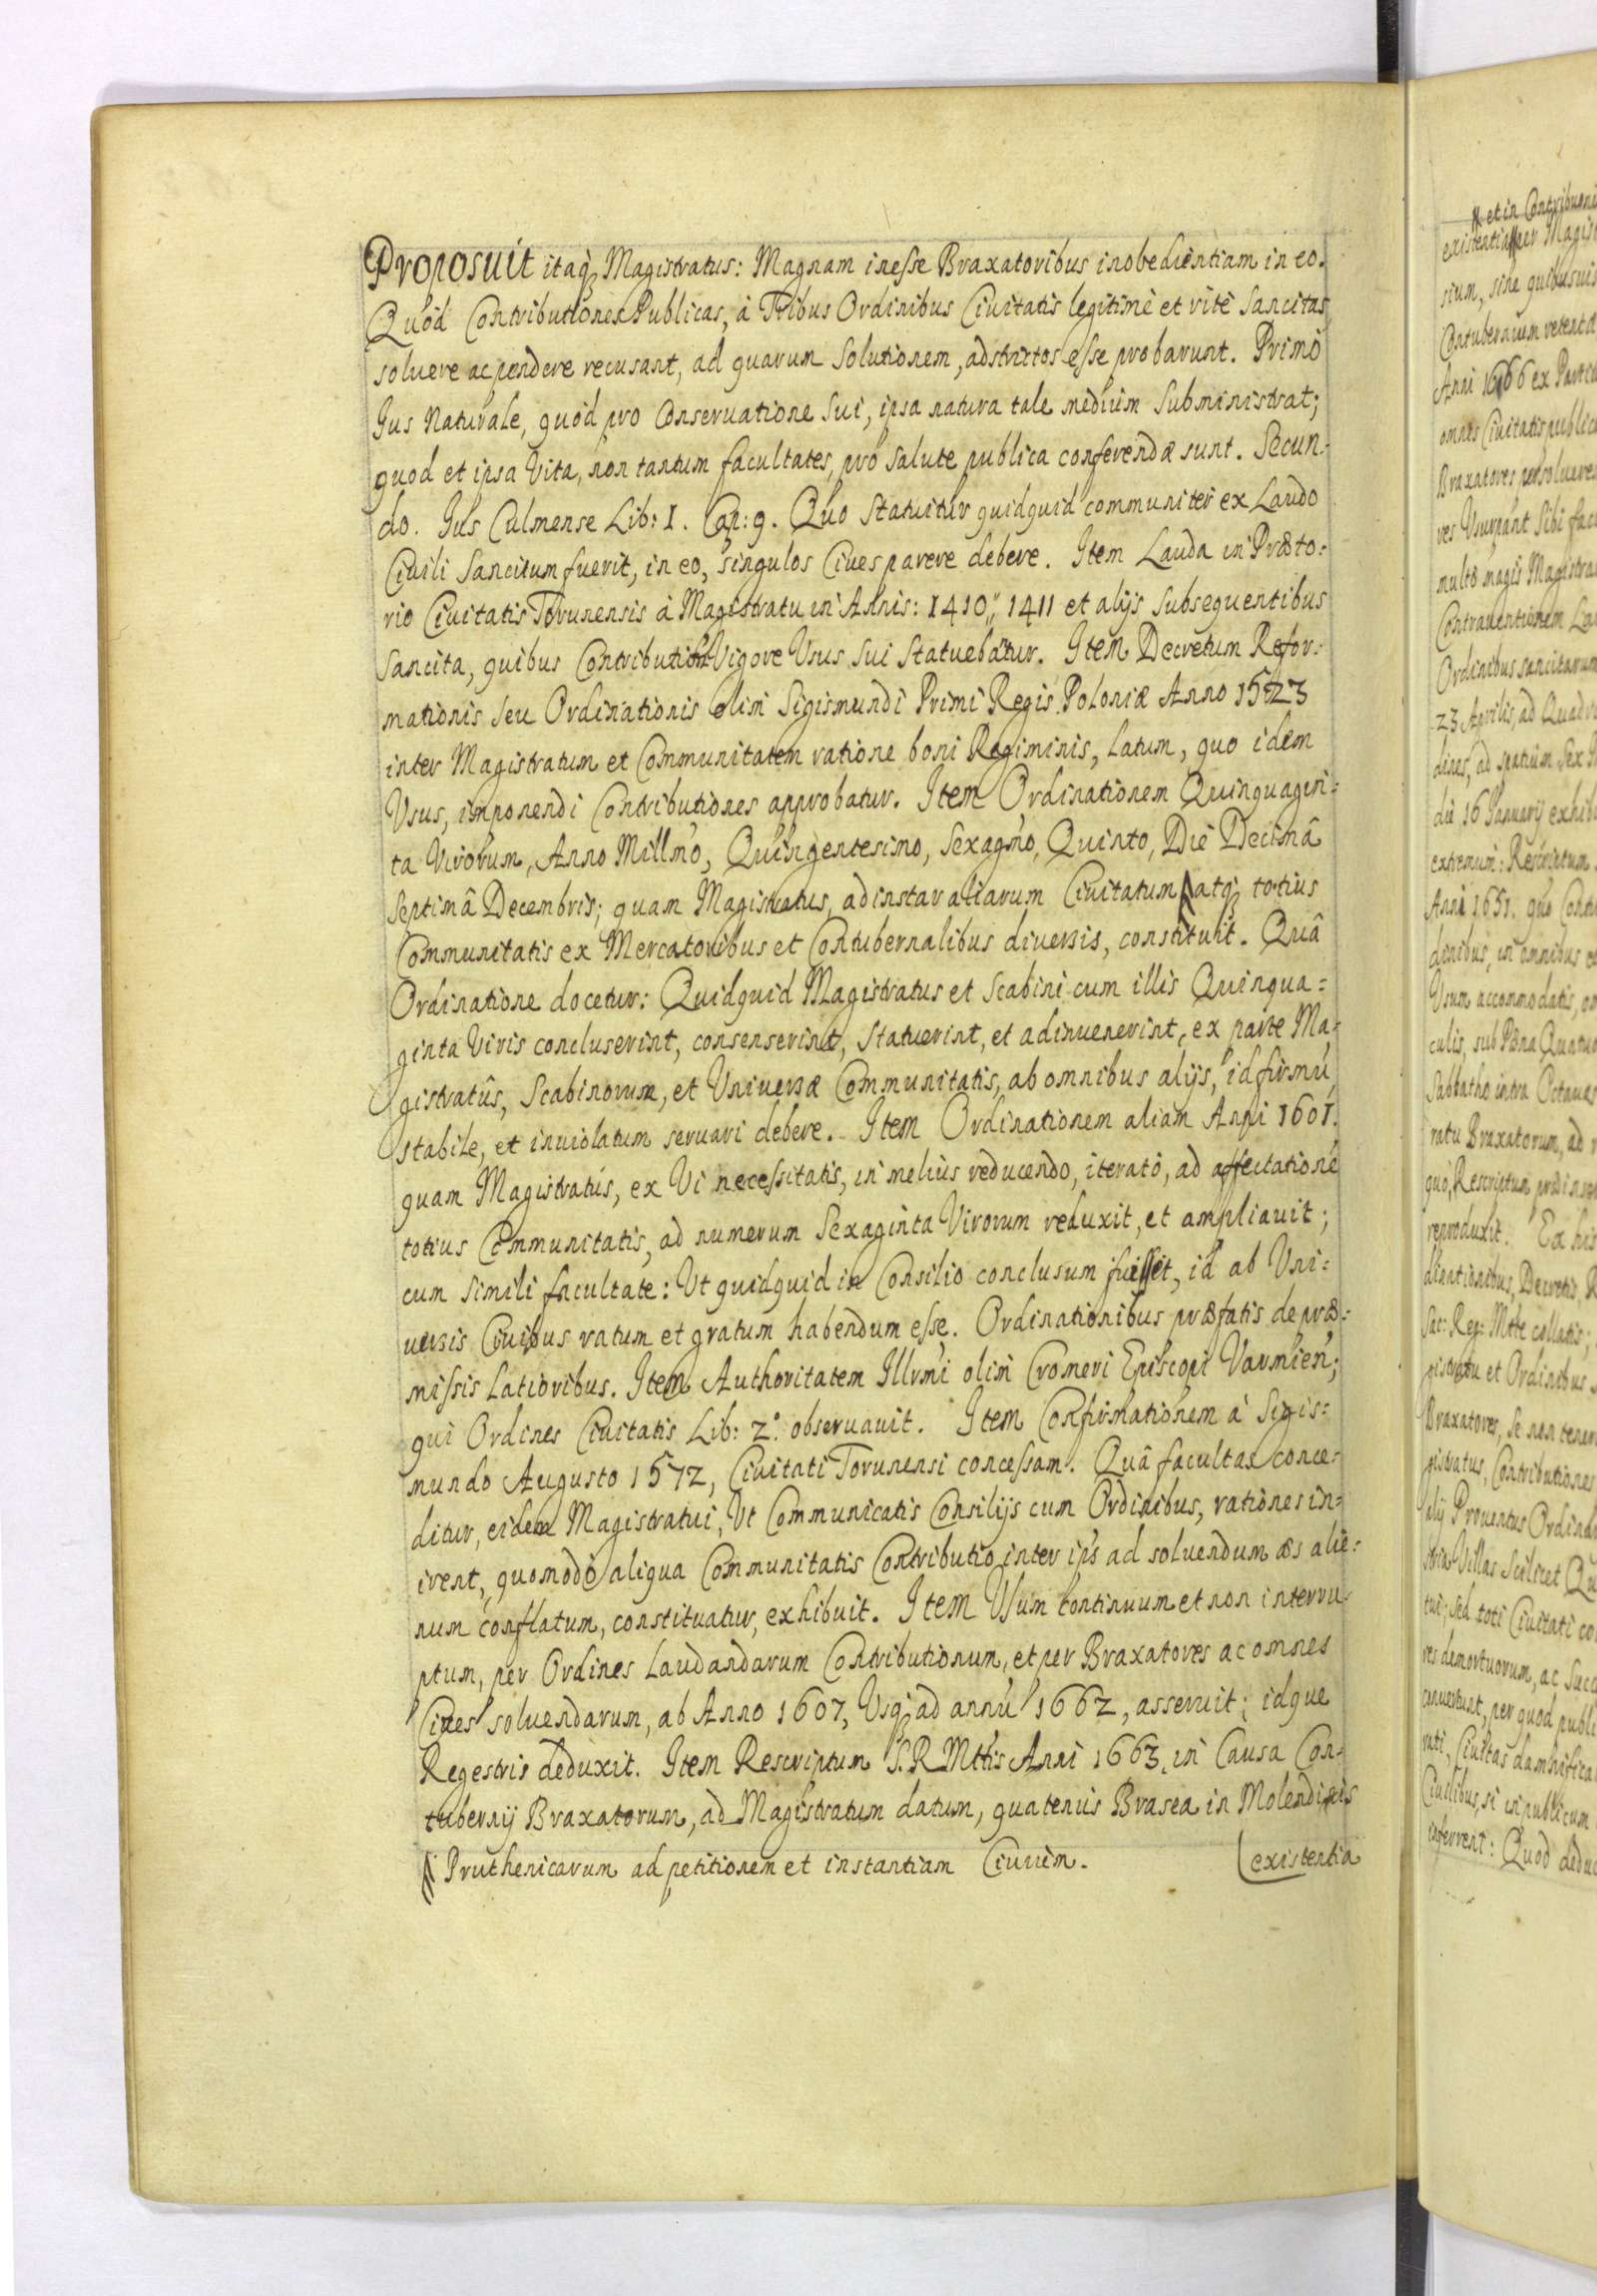 Proposuit itaq Magistratus: Magnam inesse Braxatoribus inobedientiam in eo.
Quòd Contributiones Publicas, à Tribus Ordinibus Ciuitatis legitimè et ritè Sancitas
soluere ac pendere recusant, ad quarum solutionem, adstrictos esse probarunt. Primò
Jus Naturale, quòd pro Conseruatione Sui, ipsa natura tale medium Subministrat;
quod et ipsa Vita, non tantum facultates, pro Salute publica conferendæ sunt. Secun-
do. Jus Culmense Lib: I. Cap: 9. Quo Statuitur quidquid communiter ex Laudo
Ciuili Sancitum fuerit, in eo, singulos Ciues parere debere. Item Lauda in Præto:
rio Ciuitatis Torunensis à Magistratu in Annis: 1410,, 1411 et alijs Subsequentibus
Sancita, quibus Contribution Vigore Usus Sui Statuebantur. Item Decretum Refor:
mationis Seu Ordinationis olim Sigismundi Primi Regis Poloniæ Anno 1523
inter Magistratum et Communitatem ratione boni Regiminis, Latum, quo idem
Usus, imponendi Contributiones approbatur. Item Ordinationem Quinquagin:
ta Virorum, Anno Millmo, Quingentesimo, Sexagmo, Quinto, Die Decimâ
Septimâ Decembris; quam Magistratus, ad instar aliarum Ciuitatum // atq totius
Communitatis ex Mercatoribus et Contubernalibus diuersis, constituit. Quâ
Ordinatione docetur: Quidquid Magistratus et Scabini cum illis Quinqua=
ginta Viris concluserint, consenserint, Statuerint, et adinuenerint, ex parte Ma,
gistratûs, Scabinorum, et Uniuersæ Communitatis, ab omnibus alijs, id firmū,
stabile, et inuiolatum seruari debere. Item Ordinationem aliam Anni 1601.
quam Magistratus, ex Vi necessitatis, in meliùs reducendo, iteratò, ad affectationē
totius Communitatis, ad numerum Sexaginta Virorum reduxit, et ampliauit;
cum Simili facultate: Ut quidquid in Consilio conclusum fuisset, id ab Uni:
uersis Ciuibus ratum et gratum habendum esse. Ordinationibus præfatis de præ:
missis Latioribus. Item Authoritatem Illrmi olim Cromeri Episcopi Varmien;
qui Ordines Ciuitatis Lib: 2.° obseruauit. Item Confirmationem à Sigis:
mundo Augusto 1572, Ciuitati Torunensi concessam. Quâ facultas conce:
ditur, eidem Magistratui, Ut Communicatis Consilijs cum Ordinibus, rationes in:
irent, quomodo aliqua Communitatis Contributio inter ips ad soluendum æs alie:
num conflatum, constituatur, exhibuit. Item Usum continuum et non interru:
ptum, per Ordines Laudandarum Contributionum, et per Braxatores ac omnes
Ciues soluendarum, ab Anno 1607, Usq ad annū 1662, asseruit; idque
Regestris deduxit. Item Rescriptum S. R. Mttis Anni 1663, in Causa Con-
tubernij Braxatorum, ad Magistratum datum, quatenùs Brasea in Molendinis
// Pruthenicarum ad petitionem et instantiam Ciuium. existentia
# et in Contribueni
existentia per Magist
sium, sine quibusuis
Contubernium retenta
Anni 1666 ex Partic
omnes Ciuitatis public
Braxatores persoluere
res Usurpant Sibi fac
multò magis Magistra
Contrauentionem La
Ordinibus sancitarum
23 Aprilis, ad Quadr
dines, ad spatium Sex
die 16 Januarij exhib
extremum: Rescriptum
Anni 1651. quo Contu
dinibus, in omnibus et
Usum accommodatis,
culis, sub Pœna Quatuo
Sabbatho intra Octauas
ratu Braxatorum, ad
quò, Rescriptum præinser
reproduxit. Ex his
dinationibus, Decretis R
Sac: Reg: Mtte collatis;
gistratu et Ordinibus
Braxatores, Se non tener
gistratus, Contributiones
alij Prouentus Ordina
Villas Scilicet Qu
tui; Sed toti Ciuitati co
res demortuorum, ac Suc
conuertunt, per quod publi
rati, Ciuitas damnifica
Ciuilibus, si in publicum
inferrent: Quod deduc